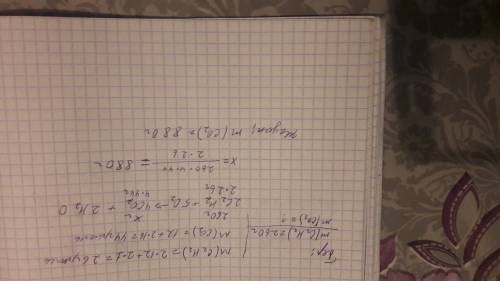 Бер:
m(C₂H₂)=260г
m(CO₂)=?
M(C₂H₂)=2·12+2·1=26г/моль
M(CO₂)=12+2·16=44г/моль
260г xг
2C₂H₂ + 5O₂ → 4CO₂ + 2H₂O
2·26г 4·44г
x = 260·4·44 / 2·26 = 880г
m(CO₂) = 880г